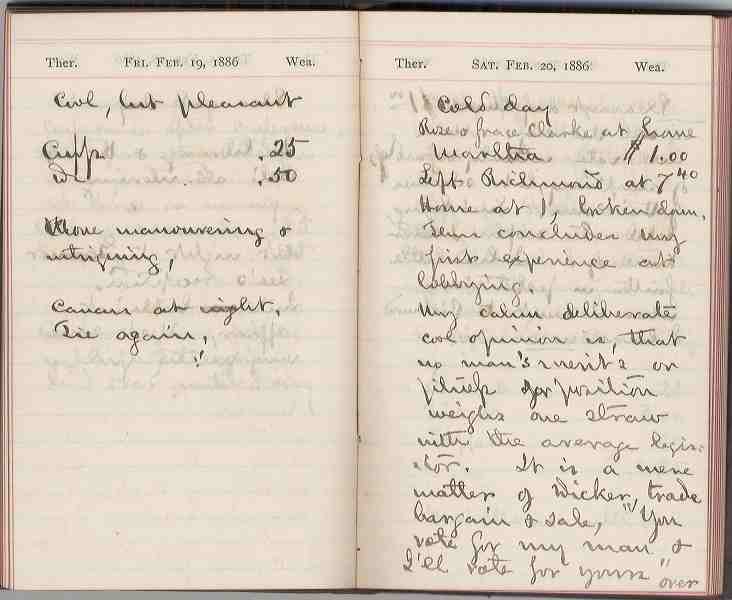 Ther. FRI. FEB. 19, 1886 Wea.
Cool, but pleasant
.25
.50
More manouvering &
intriguing!
Caucus at night.
Tie again,
!
Ther. SAT. FEB. 20, 1886 Wea.
Cold day
Rose & Grace Clarke at home
Martha $1.00
Left Richmond at 7 40
Home at 1, broken down.
Thus concludes my
first experience at
lobbying.
My calm deliberate
cool opinion is, that
no man's merit's or
fitness for position
weighs one straw
with the average legis-
lator. It is a mere
matter of dicker, trade
bargain & sale, "You
vote for my man &
I'll vote for yours"
over